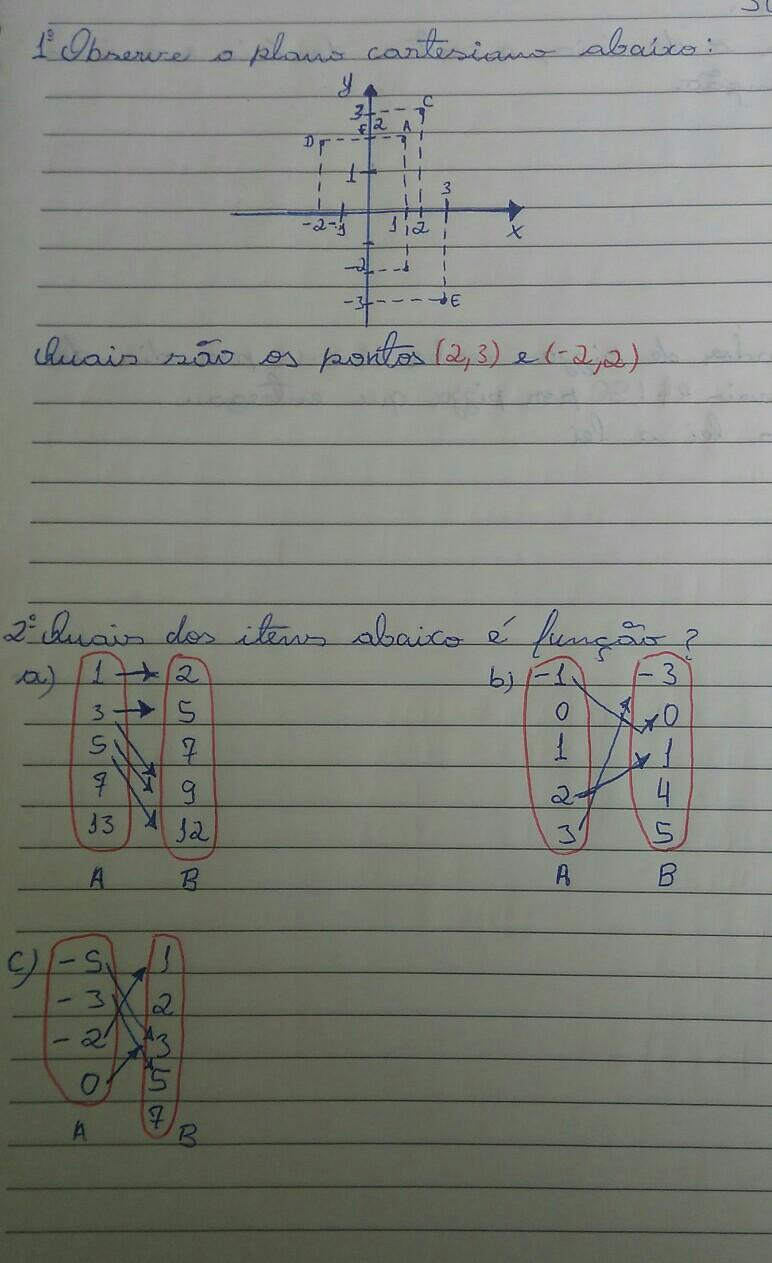 1º Observe o plano cartesiano abaixo:
y
3 C
F 2 A
D
1
3
-2 -1 1 2 x
-2
-3 E
Quais são os pontos (2,3) e (-2,2)
2º Quais dos itens abaixo é função?
a) 1 2 b) -1 -3
3 5 0 0
5 7 1 1
7 9 2 4
13 12 3 5
A B A B
c) -5 1
-3 2
-2 3
0 5
7
A B